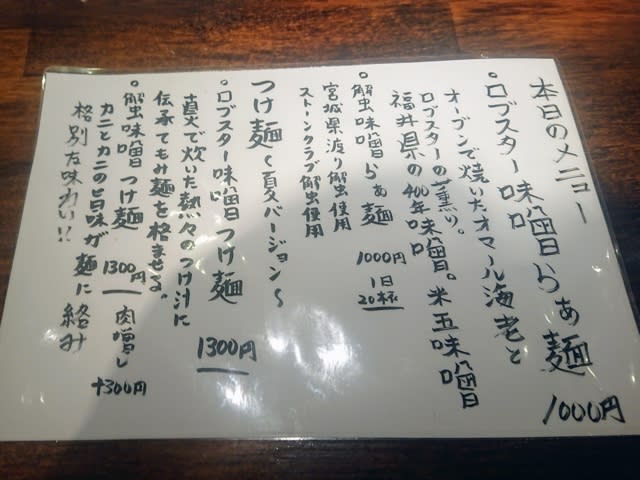 本日のメニュー
○ロブスター味噌らぁ麺
1000円
オーブンで焼いたオマール海老と
ロブスターの薫り。
福井県の400年味噌。米五味噌
○蟹味噌らぁ麺 1000円
1日
20杯
宮城県渡り蟹使用
ストーンクラブ蟹使用
つけ麺〜夏バージョン〜
○ロブスター味噌つけ麺
1300円
直火で炊いた熱々のつけ汁に
伝承てもみ麺を格ませる。
○蟹味噌つけ麺 1300円 肉増し
+300円
カニとカニの旨味が麺に絡み
格別な味わい!!